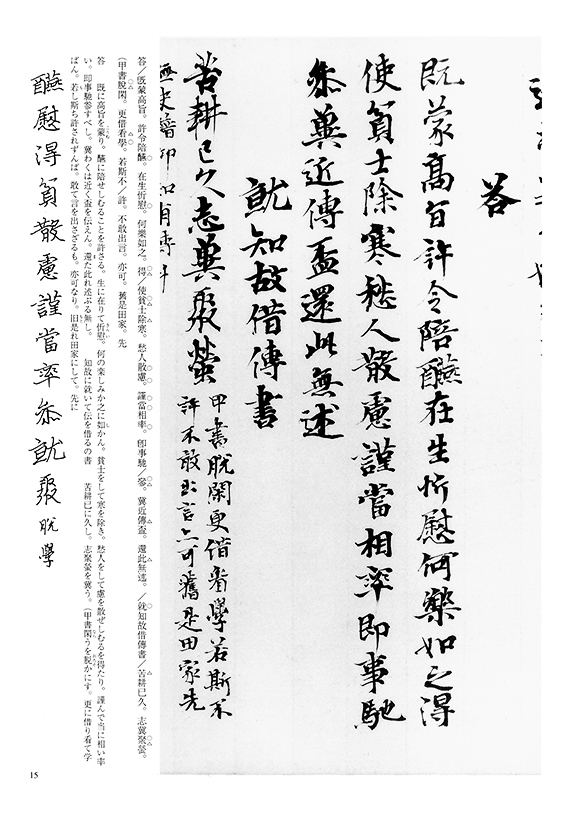 答
既蒙高旨許令陪醼在生忻慰何樂如之得
使貧士除寒愁人散慮謹當相率即事馳
參冀近傳盃還此無述
就知故借傳書
苦耕已久志冀聚螢
甲書脫閑更借看學若斯不
許不敢出言亦可舊是田家先
答／既蒙高旨。許令陪醼。在生忻慰。何樂如之。得／使貧士除寒。愁人散慮。謹當相率。卽事馳／參。冀近傳盃。還此無述。／就知故借傳書／苦耕已久。志冀聚螢。
（甲書脫閑。更借看學。若斯不／許。不敢出言。亦可。舊是田家。先
答　既に高旨を蒙り。醼に陪せしむることを許さる。生に在りて忻慰。何の楽しみか之に如かん。貧士をして寒を除き。愁人をして慮を散ぜしむるを得たり。謹んで当に相い率
い。即事馳参すべし。冀わくは近く盃を伝えん。還た此れ述ぶる無し。　知故に就いて伝を借るの書　苦耕已に久し。志聚螢を冀う。（甲書閑うを脱かにす。更に借り看て学
ばん。若し斯ち許されずんば。敢て言を出さざるも。亦可なり。旧是れ田家にして。先に
醼慰得貧散慮謹當率參就聚脫學
15